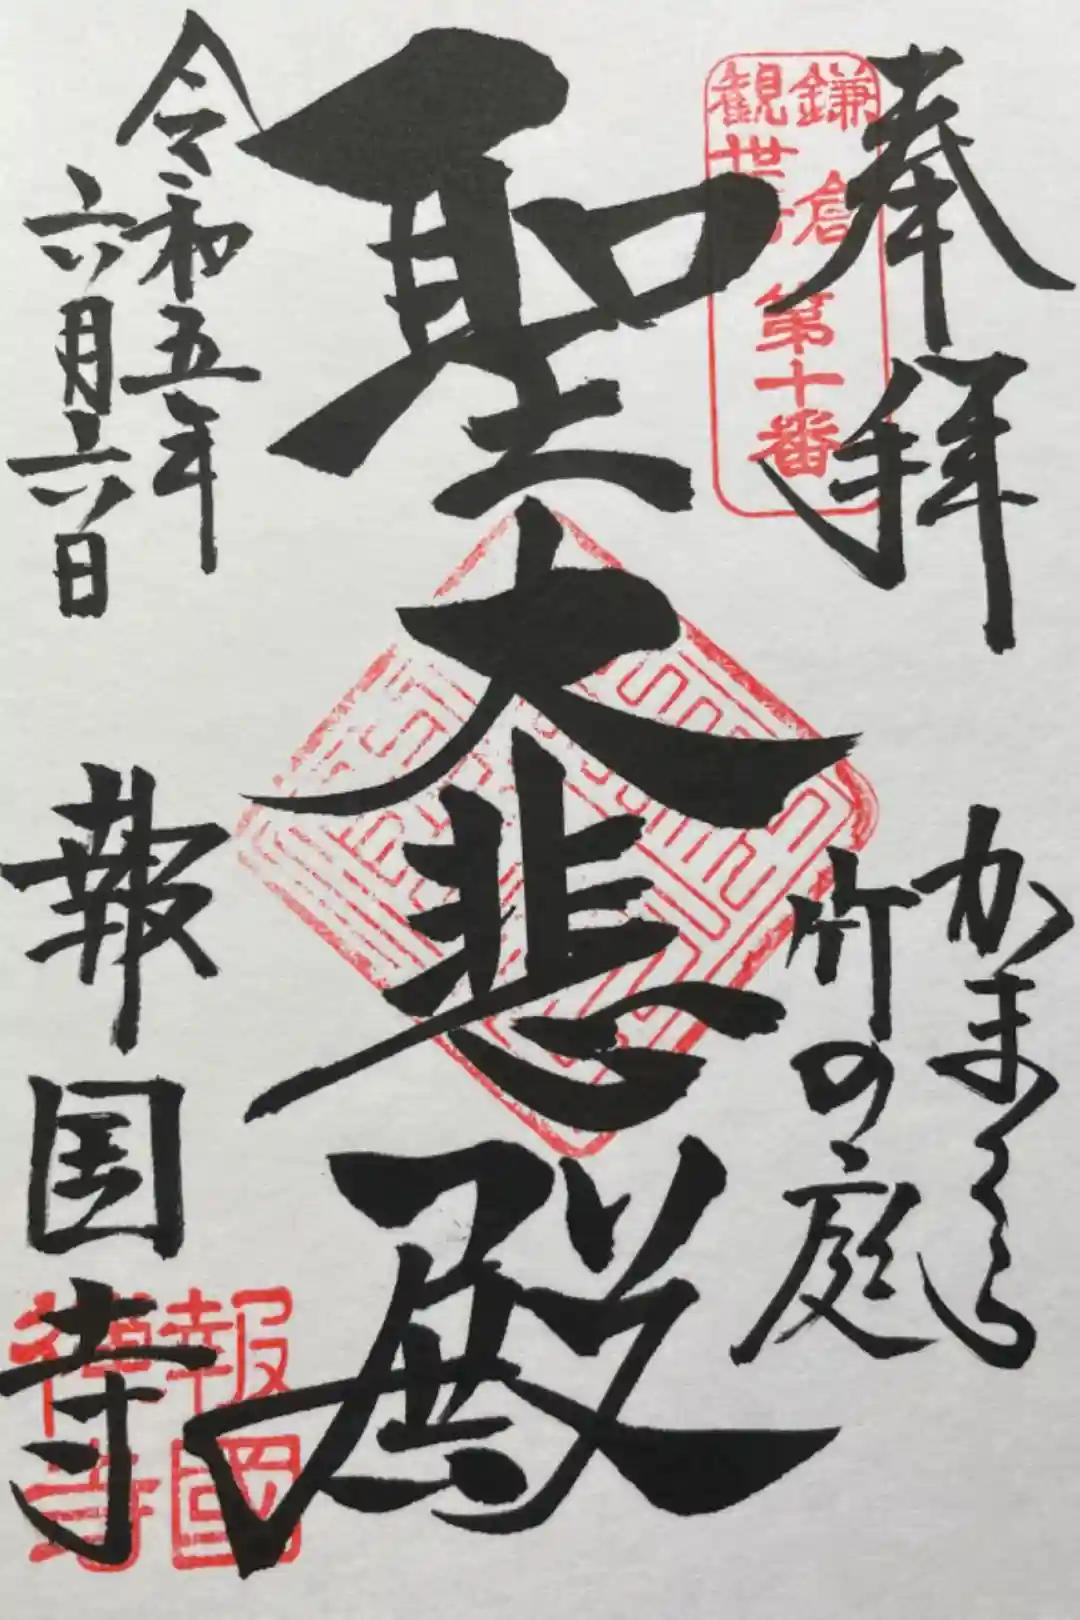 奉拝
鎌倉
観世音
第十番
かまくら
竹の庭
聖大悲殿
令和五年
六月六日
報国寺
報國
禅寺